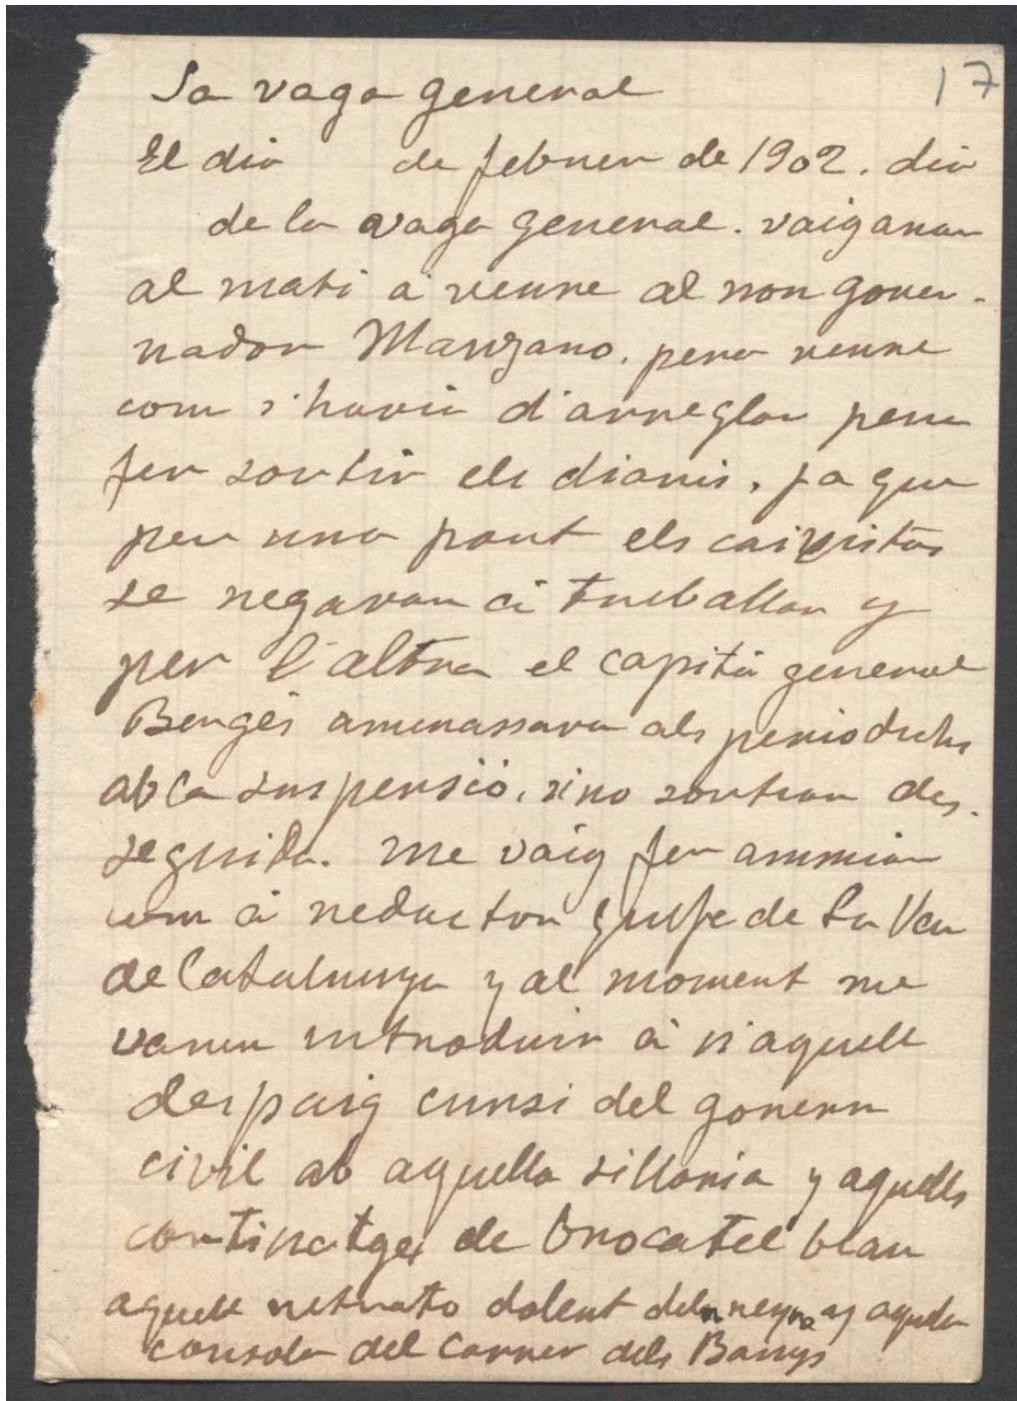 La vaga general
17
El dia de febrer de 1902. dia
de la vaga general. vaig anar
al mati a veure al nou gover-
nador Manzano. pera veure
com s'havia d'arreglar pera
fer sortir els diaris, ja que
per una part els caixistas
se negavan á treballar y
per l'altra el capitá general
Bergés amenassava als periodichs
ab la suspensió, sino sortian des-
seguida. Me vaig fer anunciar
com á redactor gefe de La Veu
de Catalunya y al moment me
varen introduir á n'aquell
despaig cursi del govern
civil ab aquella silleria y aquells
cortinatges de brocatel blau
aquell retrato dolent del reyna y aquella
consola del carrer dels Banys